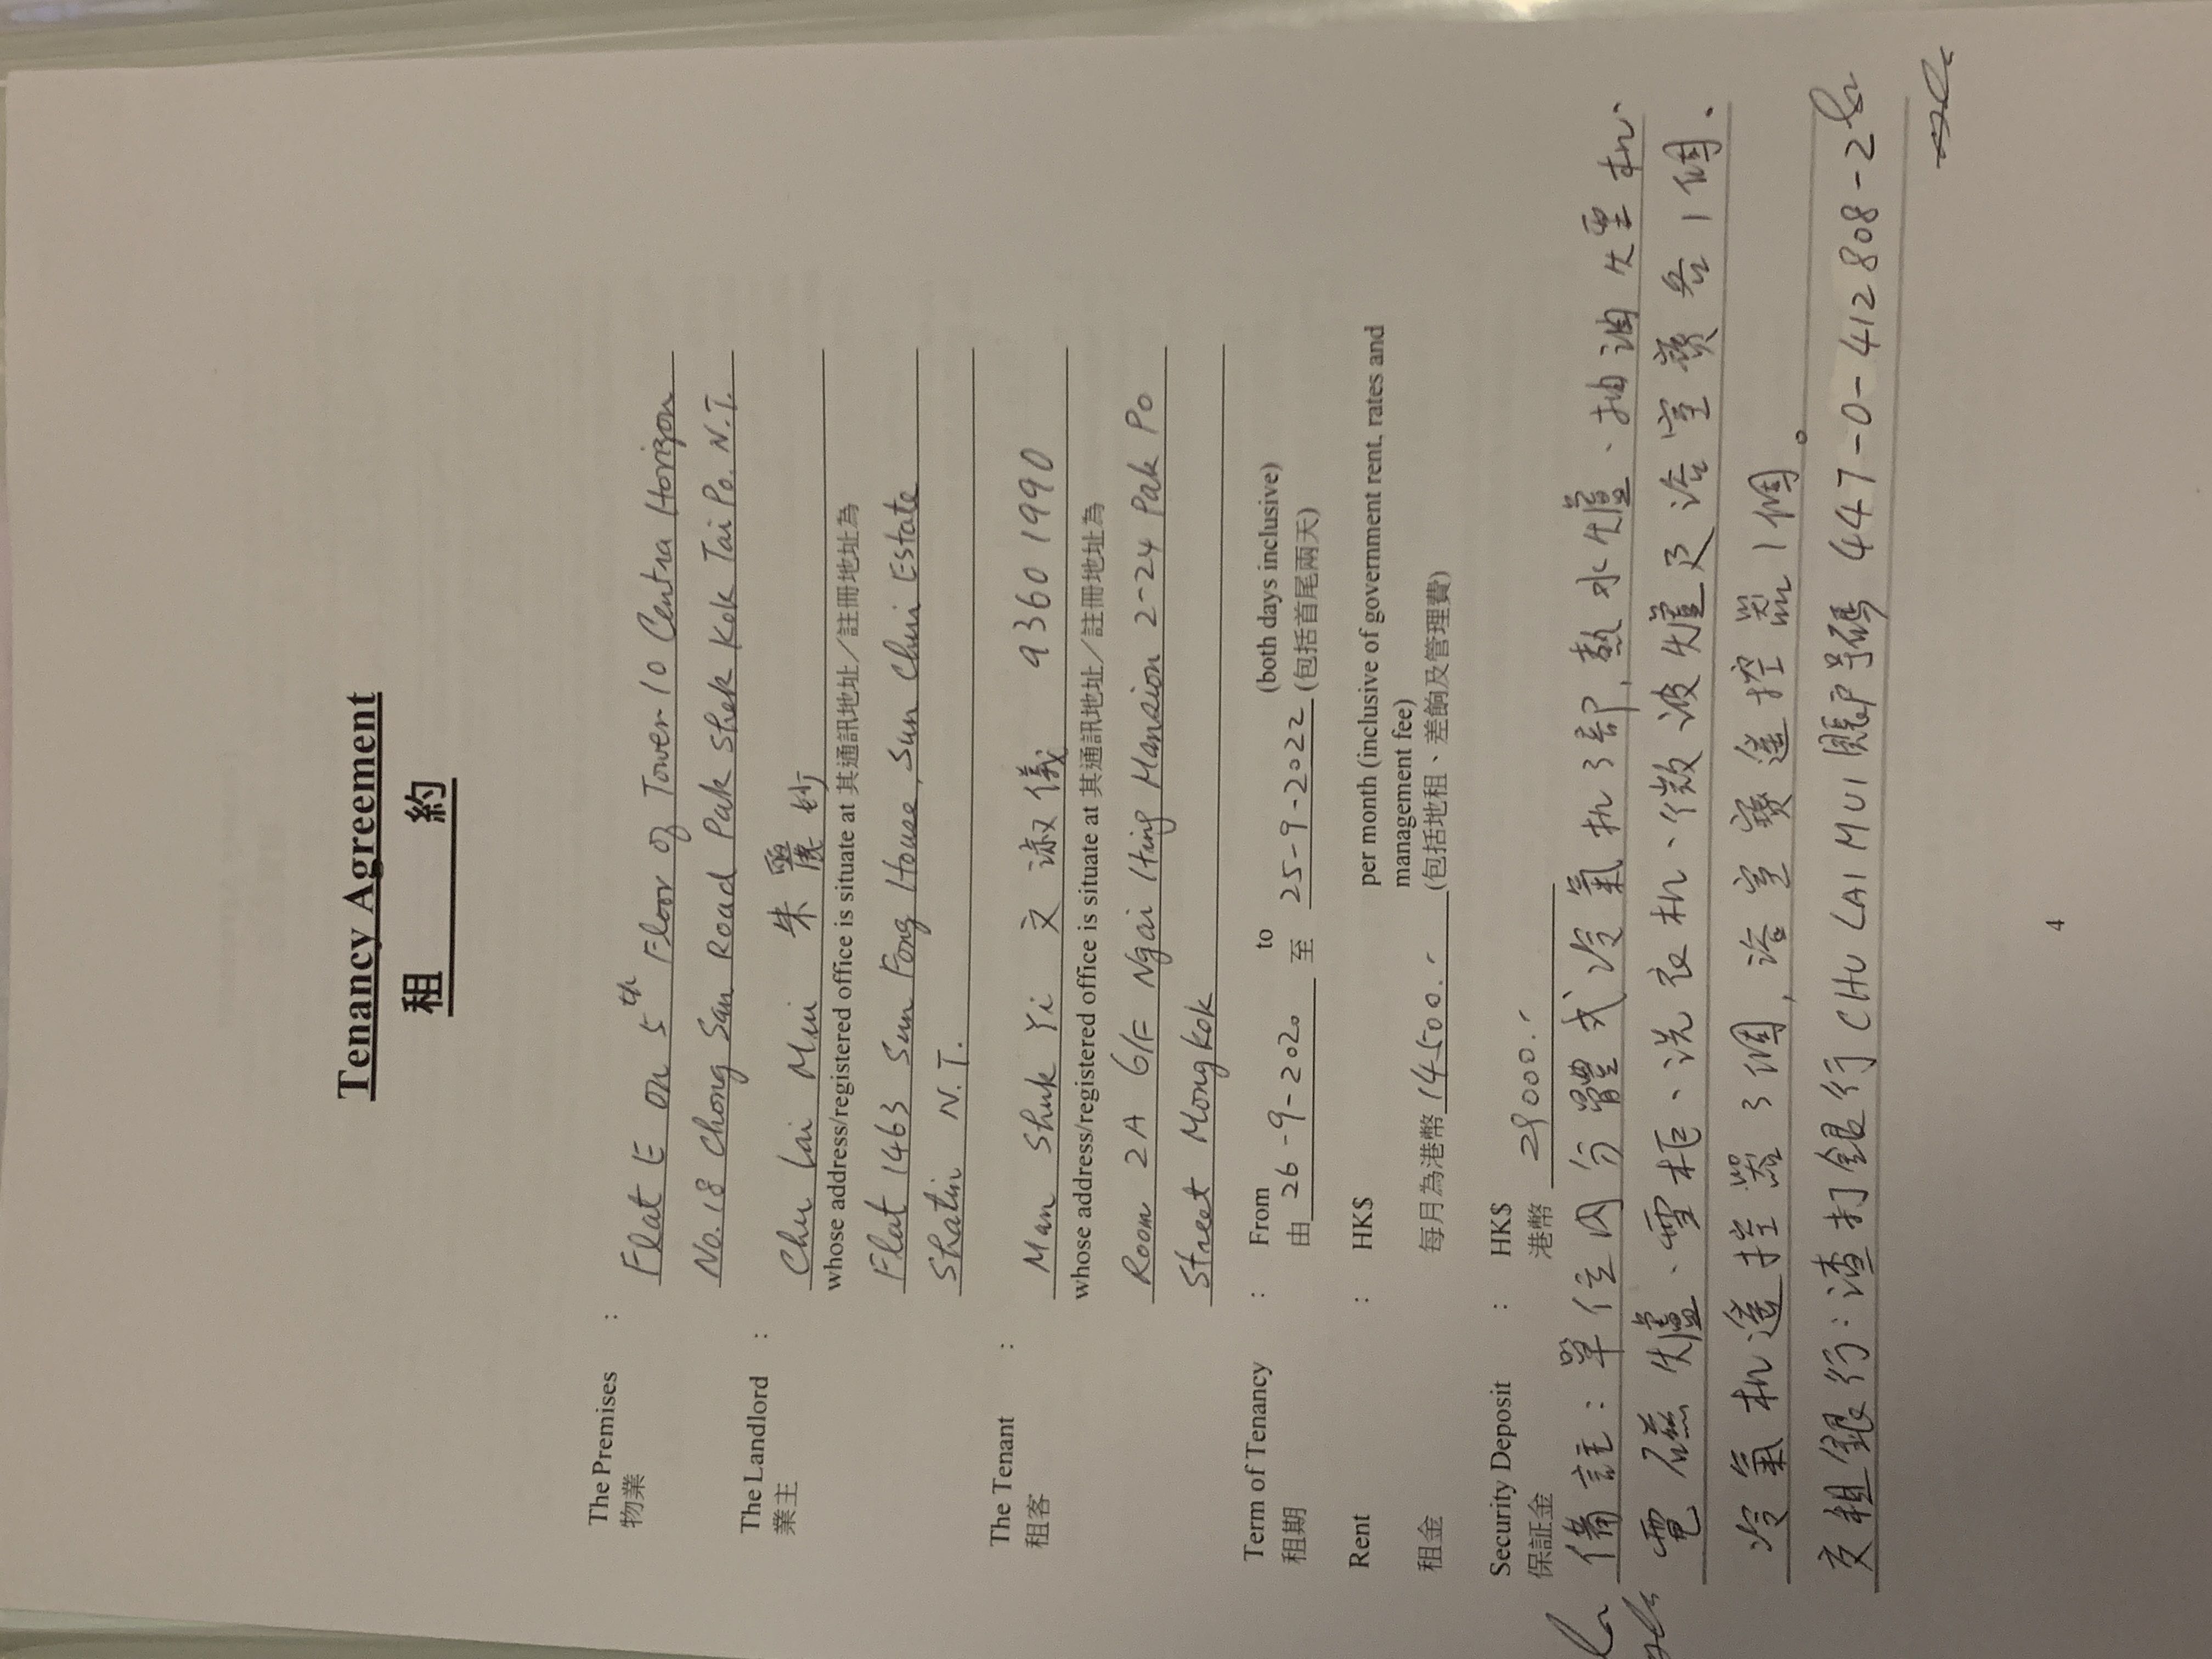 Tenancy Agreement
租 約
The Premises : Flat E on 5th Floor of Tower 10 Centra Horizon
物業
No. 18 Chong San Road Pak Shek Kok Tai Po. N.T.
The Landlord : Chu Lai Mui 朱麗妙
業主
whose address/registered office is situate at 其通訊地址/註冊地址為
Flat 1463 Sun Fong House, Sun Chui Estate
Shatin N.T.
The Tenant : Man Shuk Yi 文淑儀 9360 1990
租客
whose address/registered office is situate at 其通訊地址/註冊地址為
Room 2A 6/F Ngai Hing Mansion 2-24 Pak Po
Street Mongkok
Term of Tenancy : From to (both days inclusive)
租期 由 26-9-2020 至 25-9-2022 (包括首尾兩天)
Rent : HK$ per month (inclusive of government rent, rates and
management fee)
租金 每月為港幣 14500.- (包括地租、差餉及管理費)
Security Deposit : HK$
保証金 港幣 29000.-
備註：單位內分體式冷氣机3部，熱水爐、抽油烟机、
電磁爐、雪柜、洗衣机、微波爐及浴室寶各1個．
冷氣机遙控器3個，浴室寶遙控器1個。
交租銀行：渣打銀行 CHU LAI MUI 賬戶号碼 447-0-412808-2
4